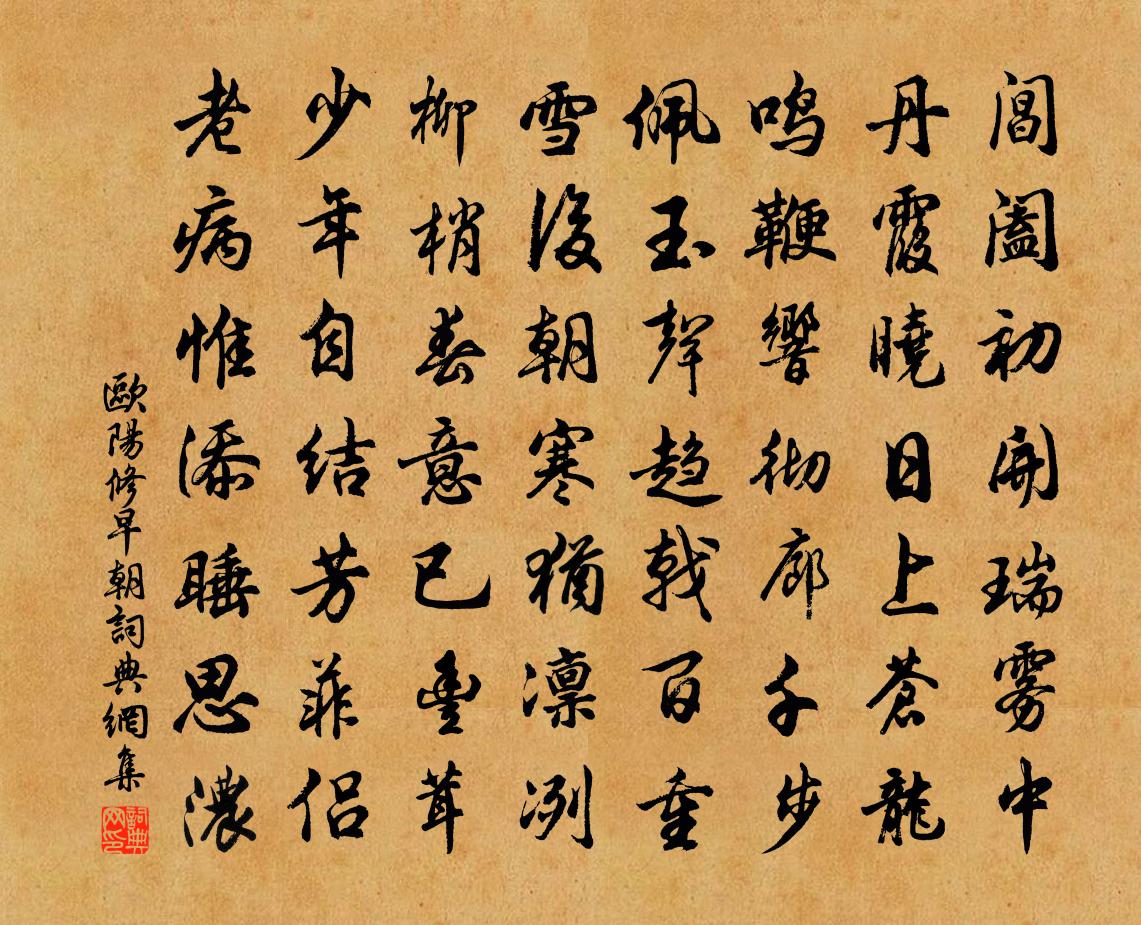 閶闔初開瑞霧中
丹霞曉日上蒼龍
鳴鞭響徹廊千步
佩玉聲趨戟百重
雪後朝寒猶凛冽
柳梢春意已豐茸
少年自結芳菲侶
老病惟添睡思濃
歐陽修早朝詞典網集
詞典网印